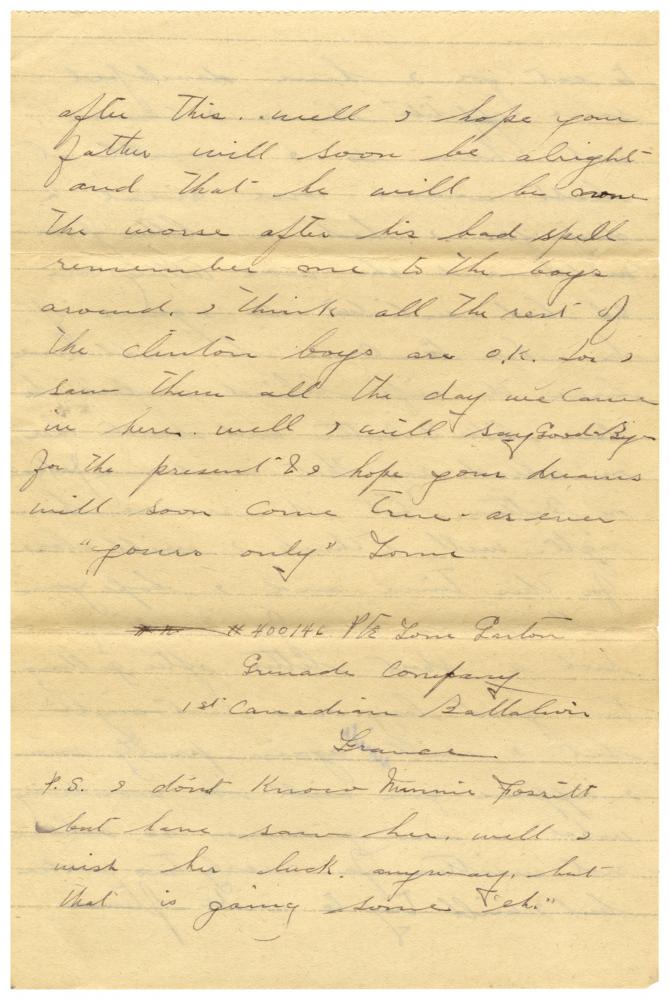 after this. well I hope your
father will soon be alright
and that he will be none
the worse after his bad spell
remember me to the boys
around. I think all the rest of
the clinton boys are O.K. for I
saw them all the day we came
in here. well I will say Good-Bye
for the present & I hope your dreams
will soon come true. as ever
"yours only" Lorne
#400146 Pte Lorne
Grenade Company
1st Canadian Battalion
France
P.S. I don't know Minnie
but have saw her. well I
wish her luck. anyway. but
that is going some "eh."